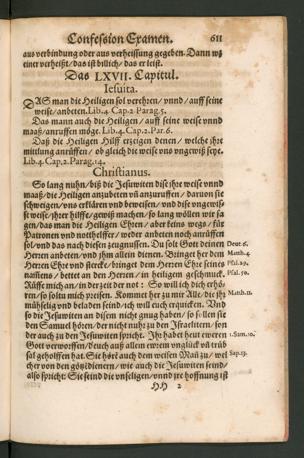 Confession Examen. 611
aus verbindung oder aus verheissung gegeben. Dann wz
einer verheißt / das ist billich / das er leist.
Das LXVII. Capitul.
Iesuita.
DAS man die Heiligen sol verehren / vnnd / auff seine
weise / anbeten. Lib. 4. Cap. 2. Parag. 5.
Das mann auch die Heiligen / auff seine weise vnnd
maaß / anruffen möge. Lib. 4. Cap. 2. Par. 6.
Daß die Heiligen Hilff erzeigen denen / welche jhr
mittlung anrüffen / ob gleich die weise vns vngewiß seye.
Lib. 4. Cap. 2. Parag. 14.
Christianus.
So lang nuhn / biß die Jesuwiten dise jhre weise vnnd
maaß / die Heiligen anzubeten vñ anzuruffen / daruon sie
schweigen / vns erklären vnd beweisen / vnd dise vngewis-
se weise / jhrer hilffe / gewiß machen / so lang wöllen wir sa
gen / das man die Heiligen Ehren / aber keins wegs / für
Patronen vnd nothhelffer / weder anbeten noch anrüffen
sol / vnd das nach diesen zeugnussen. Du solt Gott deinen
Herren anbeten / vnd jhm allein dienen. Bringet her dem
Herren Ehr vnd stercke / bringet dem Herren Ehr seines
nam̃ens / bettet an den Herren / in heiligem geschmuck.
Rüffe mich an / in der zeit der not : So will ich dich erhö-
ren / so soltu mich preisen. Kommet her zu mir Alle / die jhr
müheselig vnd beladen seind / ich will euch erquicken. Und
so die Jesuwiten an disem nicht gnug haben / so sollen sie
den Samuel hören / der nicht nuhr zu den Israeliten / son
der auch zu den Jesuwiten spricht. Ihr habt heut eweren
Gott verworffen / deuch auß allem ewrm vnglück vñ trüb
sal geholffen hat. Sie hörẽ auch dem weisen Mañ zu / wel
cher von den götzdienern / wie auch die Jesuwiten seind /
also spricht: Sie seind die vnseligen / vnnd jre hoffnung ist
HH 2
Deut. 6.
Matth. 4.
Psal. 29.
Psal. 50.
Matth. 11.
1. Sam. 10.
Sap. 13.